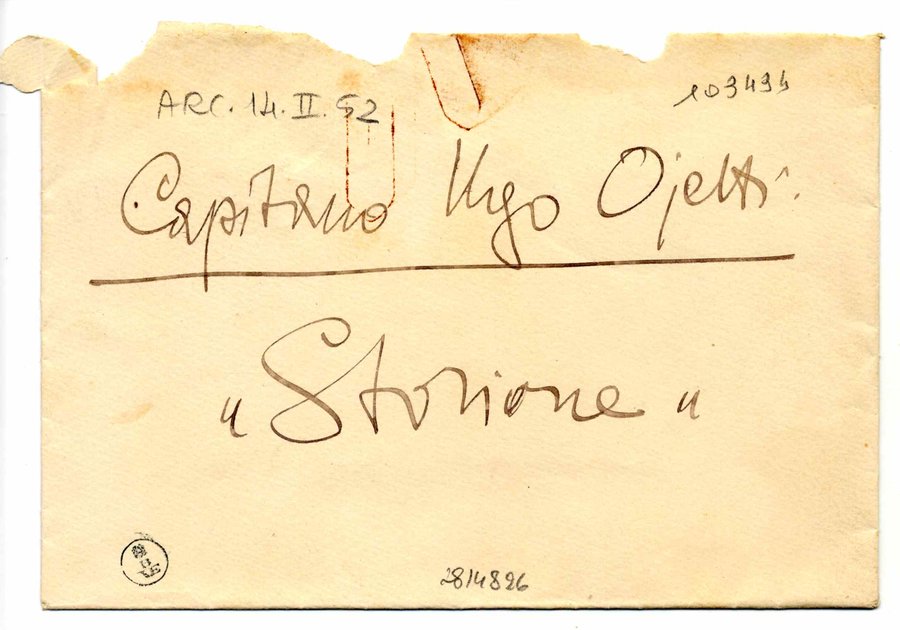 ARC. 14. II. 52
103494
Capitano Ugo Ojetti.
"Storione"
2814826